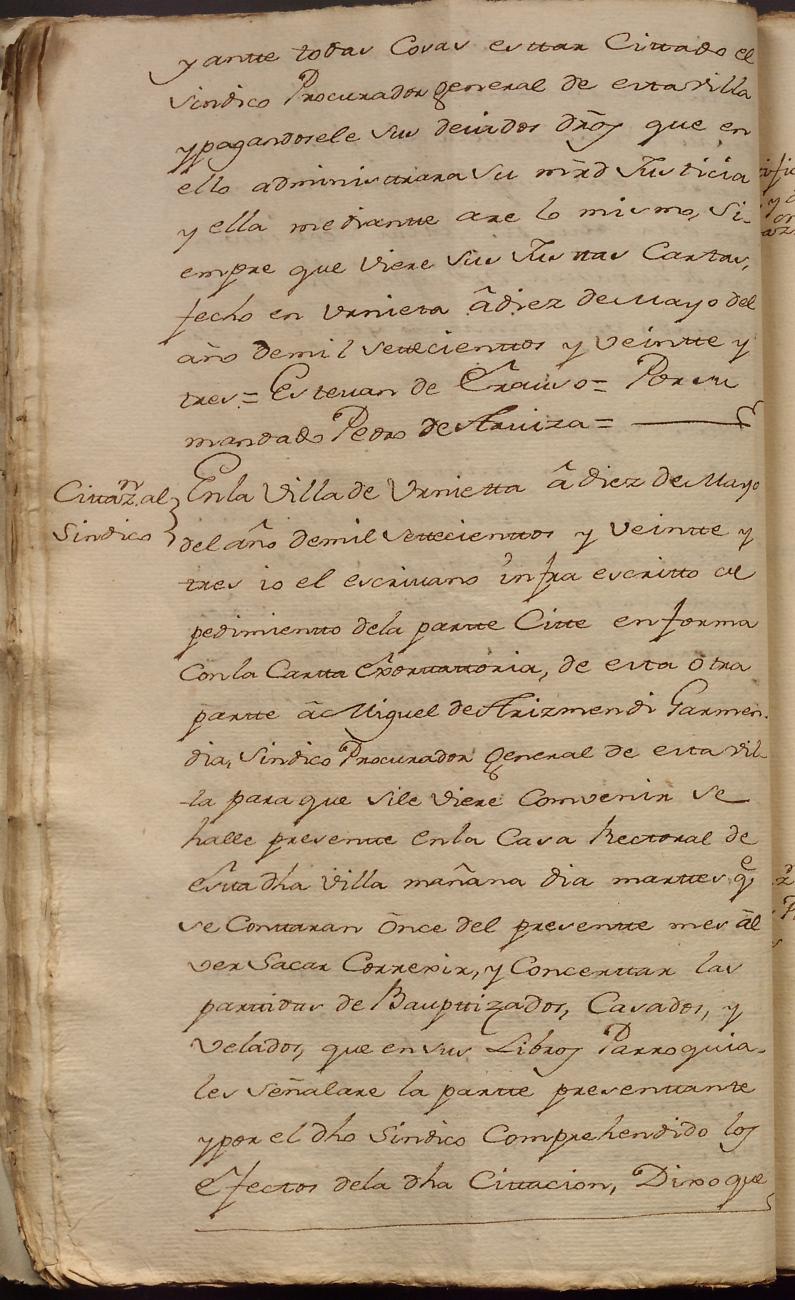 y antte todas Cosas esttar Cittado el
sindico Procurador general de esta villa
y pagandosele sus devidos dr̃os que en
ello administrara su mr̃d Justicia
y ella mediantte are lo mismo, si-
empre que viere sus Justtas Cartas,
fecho en Urnieta â diez de Mayo del
año de mil settecienttos y veintte y
tres = Estevan de Erauso = Por su
mandado Pedro de Aruiza =
Cittaz.n al
Sindico
En la Villa de Urnietta â diez de Mayo
del año de mil settecienttos y veintte y
tres io el escrivano infra escritto de
pedimientto dela partte Citte en forma
con la Cartta Exorttattoria, de esta otra
partte â Miguel de Arizmendi Garmen-
dia, sindico Procurador General de esta vil-
la para que sile viere Convenir se
halle presentte en la Casa Rectoral de
Estta dha villa mañana dia marttes q.e
se Conttaran once del presentte mes âl
ver Sacar Correxir, y Concerttar las
parttidas de Baupttizados, Casados, y
Velados, que en sus Libros Parroquia-
les señalare la partte presenttante
y por el dho Sindico Comprehendido los
efectos dela dha Cittacion, Dixo que